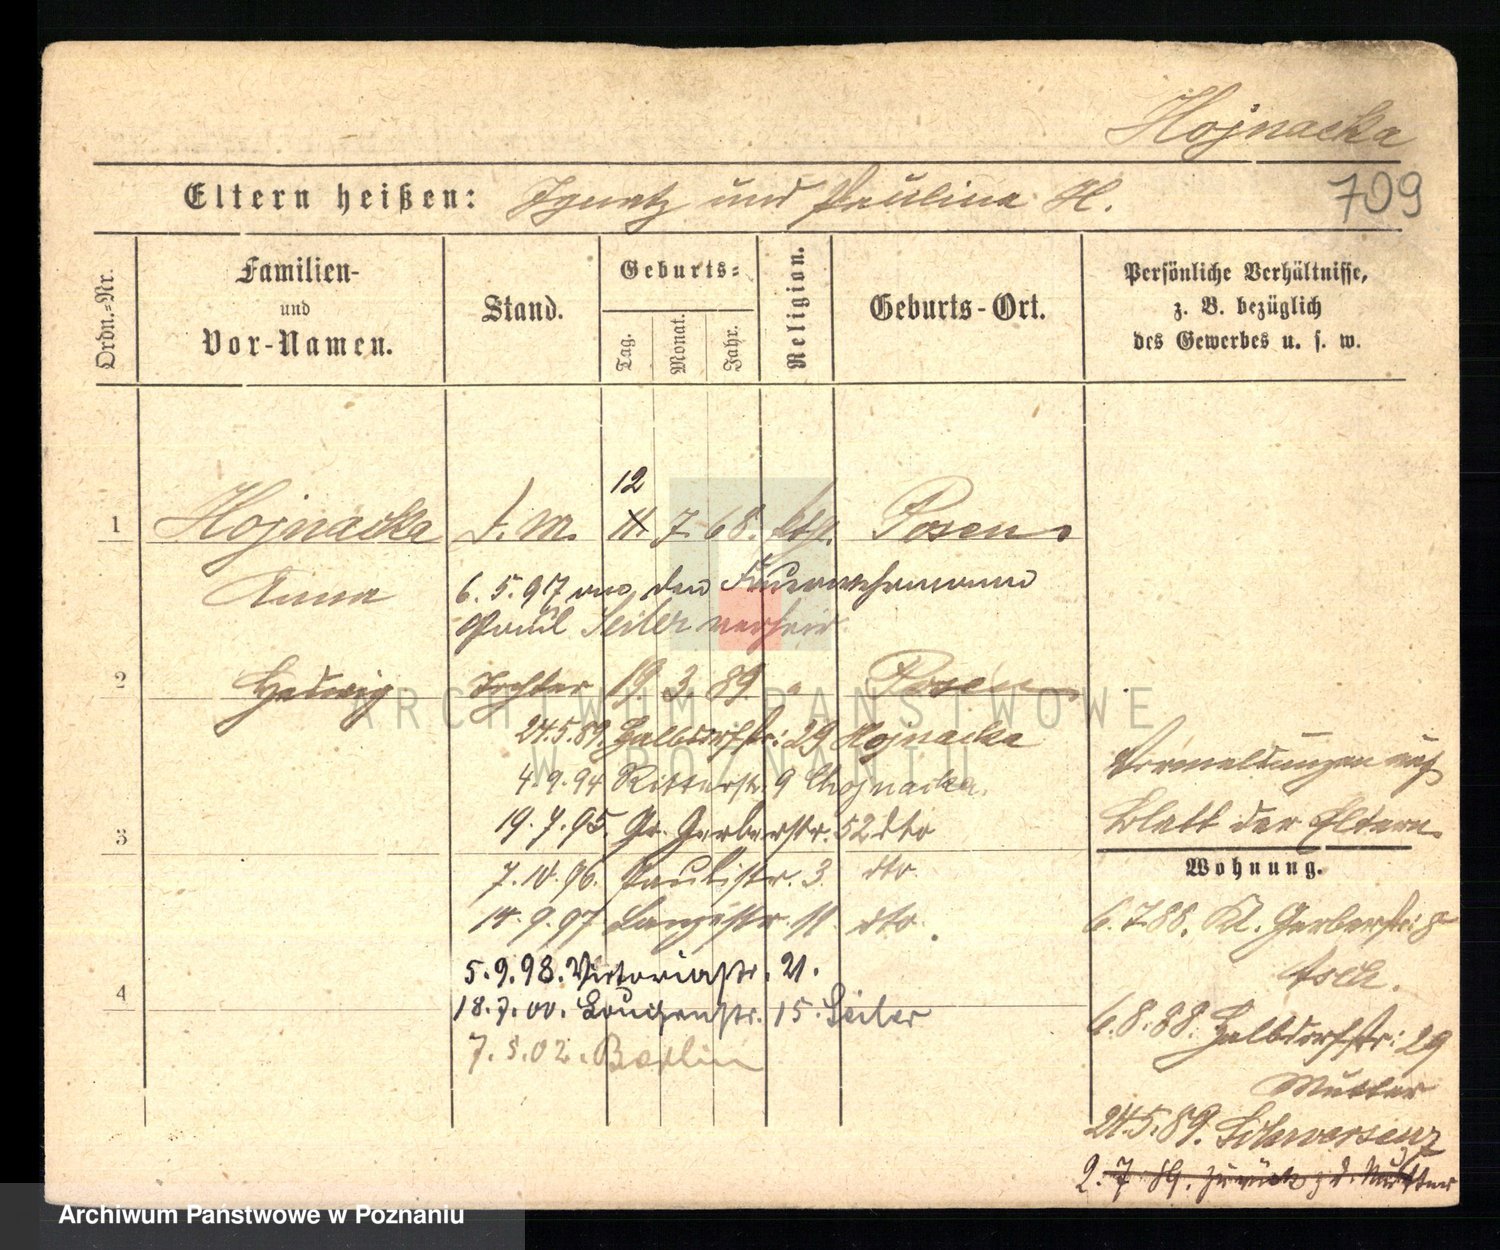 Hojnacka
Eltern heißen: Ignatz und Paulina H.
709
Ordn.-Nr.
Familien-
und
Vor-Namen.
Stand.
Geburts-
Tag.
Monat.
Jahr.
Religion.
Geburts-Ort.
Persönliche Verhältnisse,
z. B. bezüglich
des Gewerbes u. s. w.
12
1 Hojnacka D. M. 11. 7. 68. kth. Posen
Anna 6. 5. 97 an den Feuerwehrmann
Paul Seiler verheir.
2 Hedwig Tochter 19. 3. 89 " Posen
24.5.89. Halbdorfstr: 29 Hojnacka
4.9.94 Ritterstr. 9 Chojnacka.
19.7.95. Gr. Gerberstr. 52 dto
3
7.10.96. Paulistr. 3 dto.
14.9.97 Langestr. 11 dto.
5.9.98. Victoriastr. 21.
4
18.7.00. Louisenstr. 15. Seiler
7.5.02. Berlin
Vormeldungen auf
Blatt der Eltern.
Wohnung.
6.7.88. Kl. Gerberstr: 8
6.8.88. Halbdorfstr: 29
Mutter
24.5.89. Schwersenz
2.7.89. zurück z. d. Mutter
ARCHIWUM PAŃSTWOWE
W POZNANIU
Archiwum Państwowe w Poznaniu